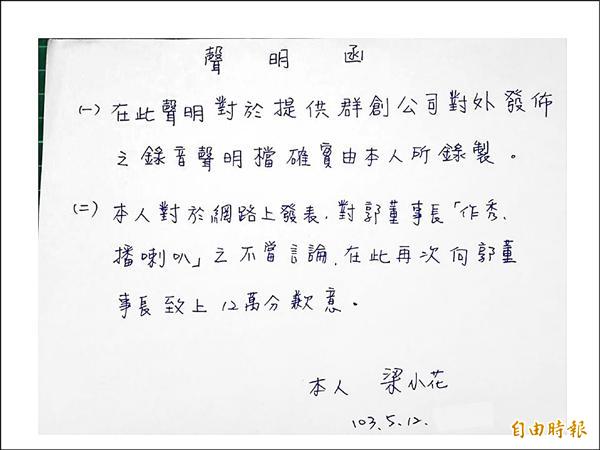 聲明函
(一) 在此聲明對於提供群創公司對外發佈
之錄音聲明檔確實由本人所錄製。
(二) 本人對於網路上發表,對郭董事長「作秀、
播喇叭」之不當言論,在此再次向郭董
事長致上12萬分歉意。
本人 梁小花
103.5.12.
自由時報